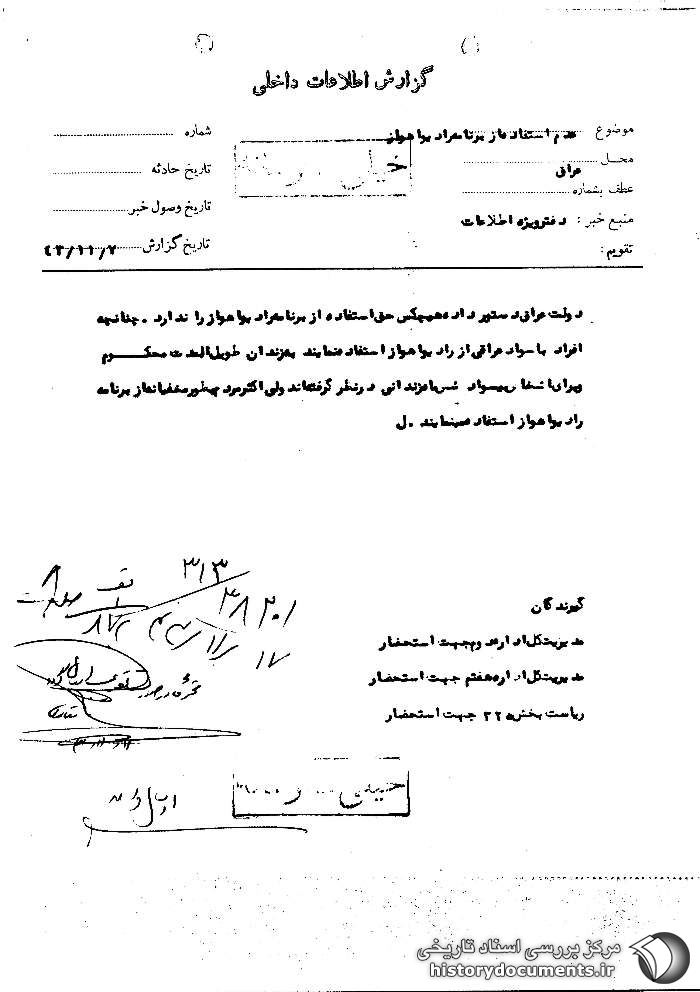 گزارش اطلاعات داخلی
موضوع عدم استفاده از برنامه رادیو اهواز
محل عراق
عطف بشماره
منبع خبر : دفتر ویژه اطلاعات
تقویم :
شماره
تاریخ حادثه
تاریخ وصول خبر
تاریخ گزارش ۴۳/۱۱/۷
خیلی
دولت عراق دستور داده هیچکس حق استفاده از برنامه رادیو اهواز را ندارد . چنانچه
افراد باسواد عراقی از رادیو اهواز استفاده نمایند بزندان طویل المدت محکوم
وبرای اشخاص بیسواد شش ماه زندانی درنظر گرفته‌اند ولی اکثر مردم بطور مخفیانه از برنامه
رادیو اهواز استفاده مینمایند . ل
گیرندگان
مدیریت کل اداره دوم جهت استحضار
مدیریت کل اداره هفتم جهت استحضار
ریاست بخش ۲۲ جهت استحضار
۳۱۳
خیلی
مرکز بررسی اسناد تاریخی
historydocuments.ir